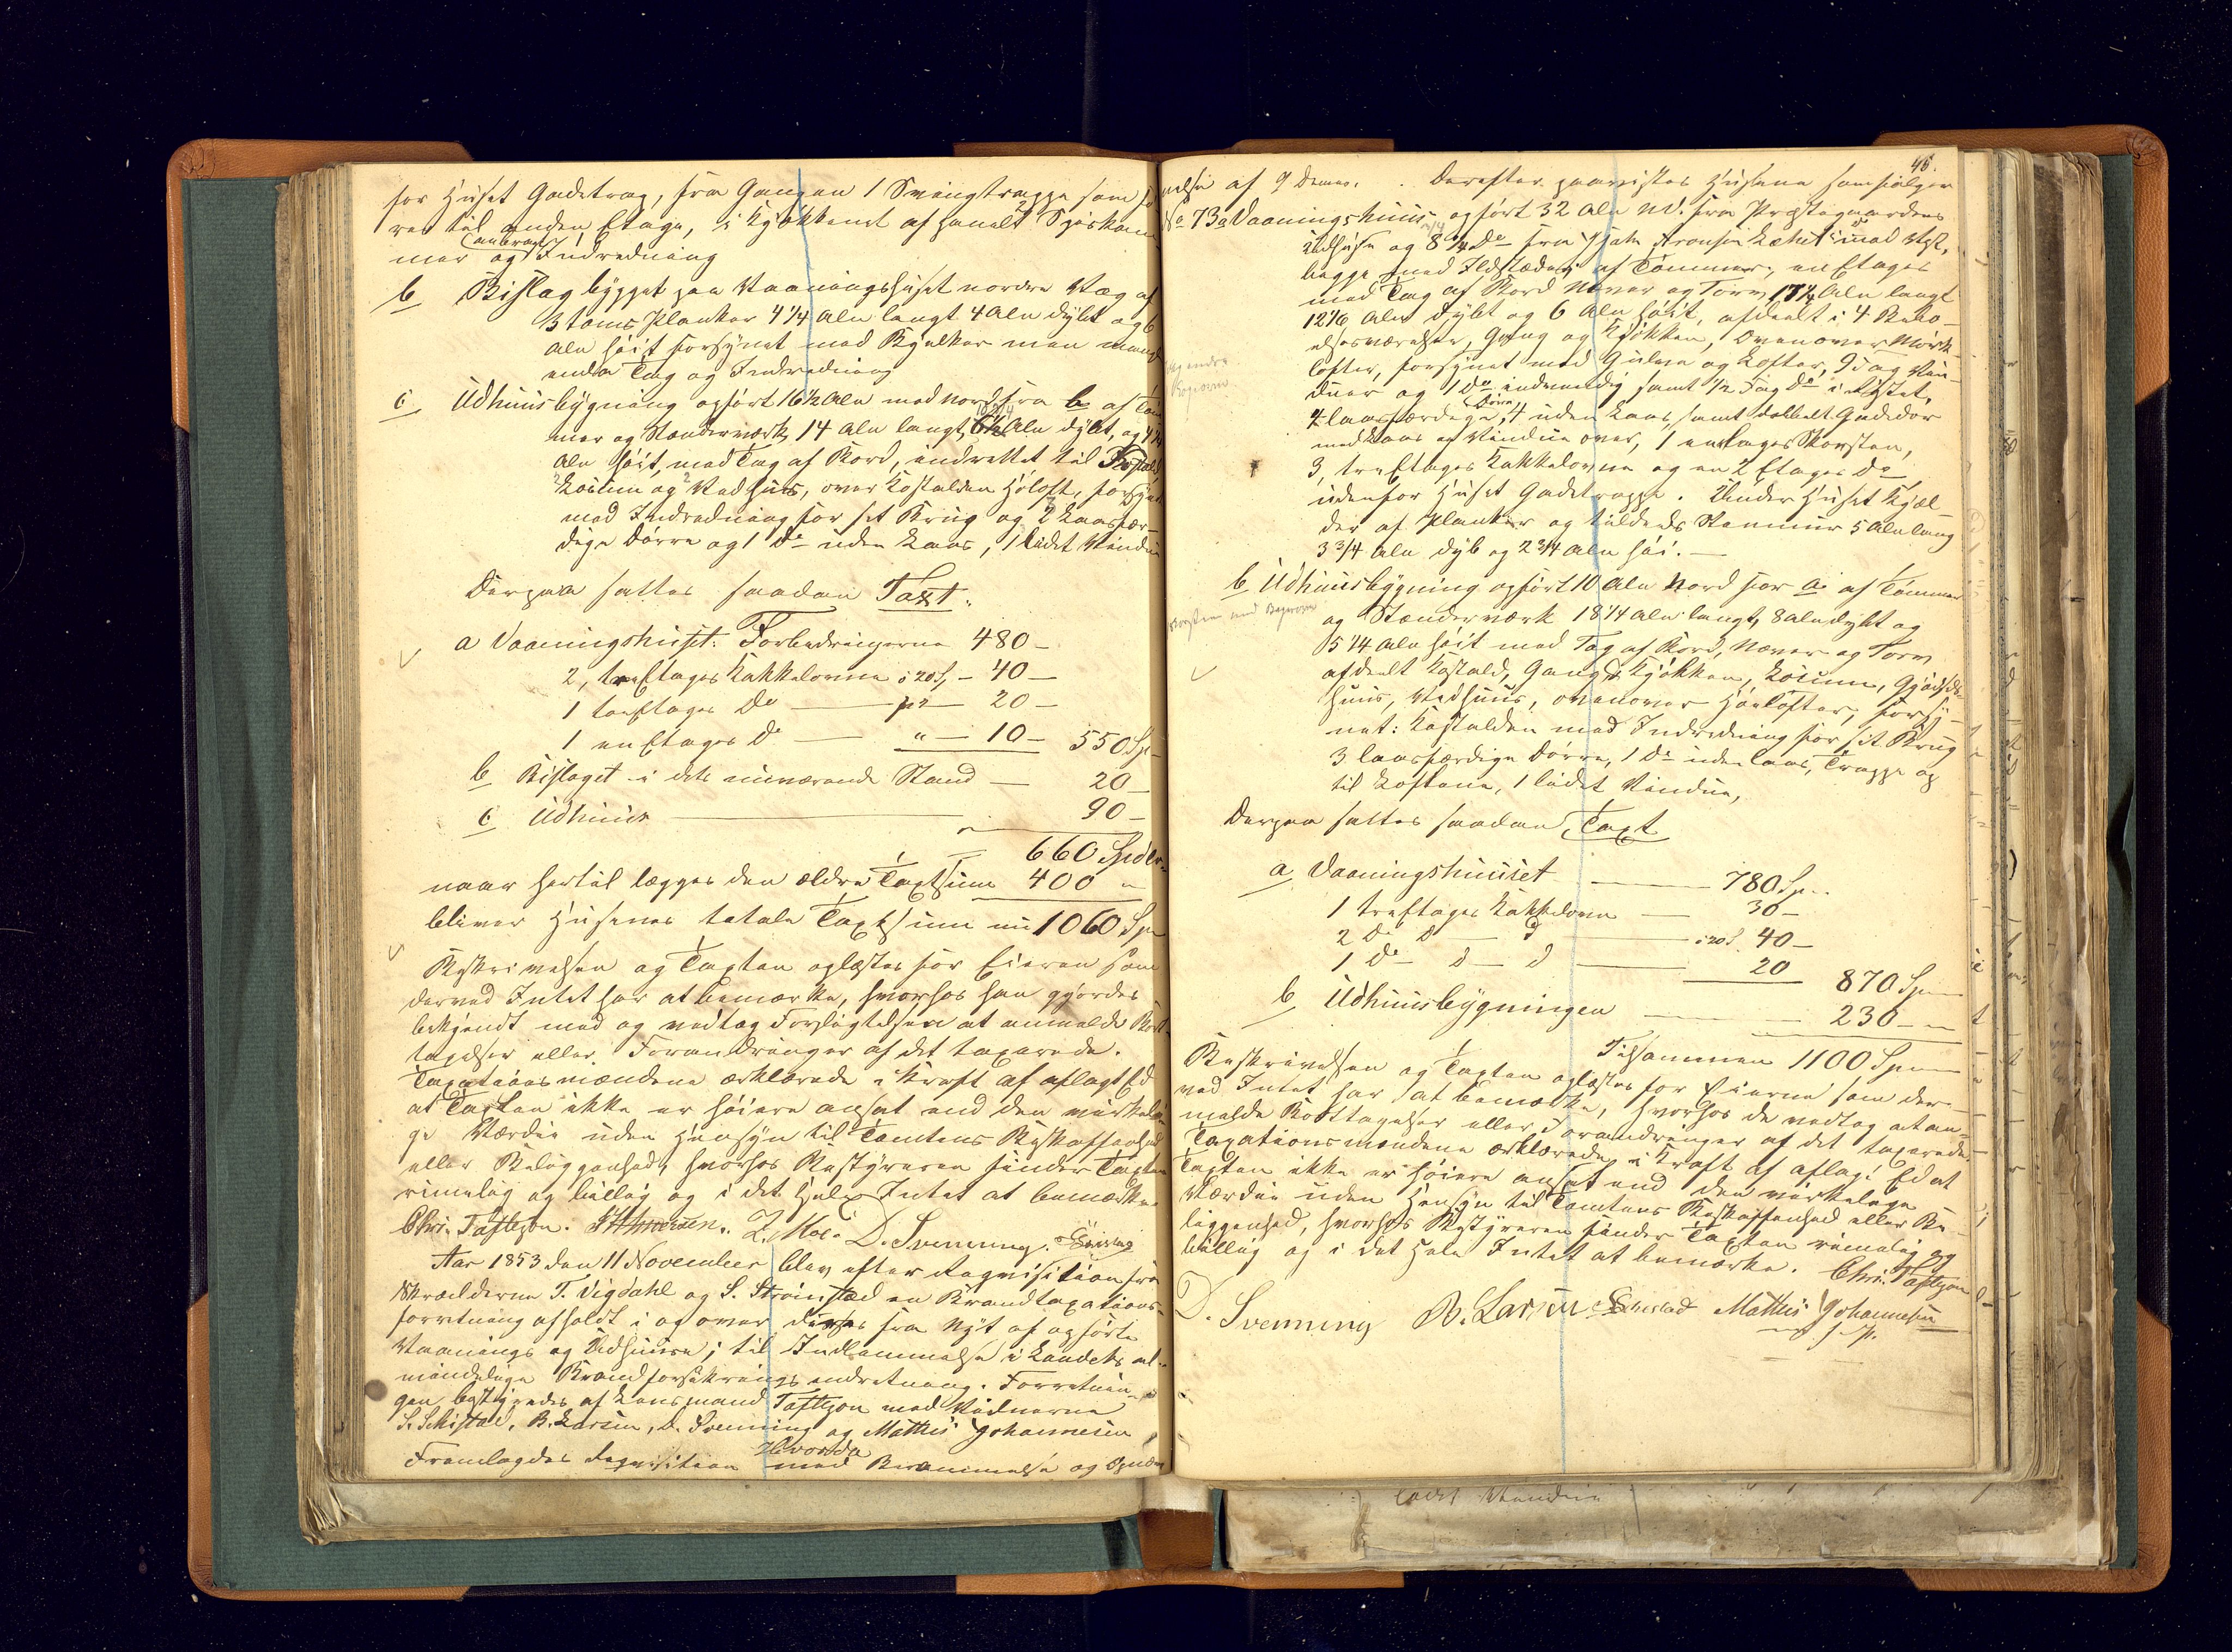 for Huset Gadetrap, fra Gangen 1 Svingtrappe som fø
rer til anden Etage, i Kjøkkenet afpanelt Spiskam
anbragt
mer og Indredning
b Bislag bygget paa Vaaningshuset nordre Væg af
3 toms Planker 4 1/4 Alen langt 4 Alen dybt og 6
Alen høit forsynet med Bjelker men mang
endnu Tag og Indredning
c Udhuusbygning opført 16 1/2 Alen mod nord fra b af Tøm
mer og Stænderværk, 14 Alen langt, 6 1/2 Alen dybt, og 4 1/4
Alen høit, med Tag af Bord, indrettet til Fæstald,
Locum og Vedhuus, over Kostalden Høloft, forsynet
med Indredning for sit Brug og 2 Laasfær-
dige Dørre og 1 do uden Laas, 1 lidet Vindue
Derpaa sattes saadan Taxt.
a Vaaningshuset: Forbedringerne 480 –
2, treetages Kakkelovne à 20 S, – 40 –
1 toetages Do – pr – 20 –
1 en Etages Do – " – 10 – 550 Sp –
b Bislaget i dets nuværende Stand – 20 –
c Udhuus – 90 –
660 Spdlr.
naar hertil lægges den ældre Taxtsum 400 "
bliver Husenes totale Taxtsum nu 1060 Sp
Beskrivelsen og Taxten oplæstes for Eieren som
derved Intet har at bemærke, hvorhos han gjordes
bekjendt med og vedtog Forpligtelsen at anmelde Bort
tagelser eller Forandringer af det taxerede.
Taxationsmændene erklærede i Kraft af aflagt Ed
at Taxten ikke er høiere ansat end den virkeli
ge Værdie uden Hensyn til Tomtens Beskaffenhed
eller Beliggenhed, hvorhos Bestyreren finder Taxten
rimelig og billig og i det Hele Intet at bemærke.
Chr. Taftezon. Z. Moe. D. Svenning.
Aar 1853 den 11 November blev efter Requisition fra
Skrædderne T. Vigdahl og S. Strømstæd en Brandtaxations-
forretning afholdt i og over disses fra Nyt af opførte
Vaanings og Udhuuse; til Indlemmelse i Landets al-
mindelige Brandforsikrings indretning. Forretnin-
gen bestyredes af Lensmand Taftezon med Vidnerne
S. Schistad, B. Larsen, D. Svenning og Mathis Johannesen
Hvorda
Fremlagdes Requisition med Berammelse og Opnæv
45.
nelse af 9 Dennes. Derefter paavistes Husene som følger
No 73 a Vaaningshuus opført 32 Alen NV. fra Præstegaardens
Udhuse og 8 1/4 Do fra Isak Aronsen mod Vest,
begge med Ildstæder, af Tømmer, en Etages
med Tag af Bord Næver og Torv, 17 1/4 Alen langt
12 1/6 Alen dybt og 6 Alen høit, afdeelt i 4 Bebo-
elsesværelser, Gang og Kjøkken, Ovenover Mørk-
lofter, forsynet med Gulve og Lofter, 9 Fag Vin-
duer og 1 Do indvendig samt 1/2 Fag Do i Røstet,
Dørre
4 laasfærdige, 4 uden Laas, samt dobbelt Gadedør
med Laas og Vindue over, 1 en etages Skorsten,
3, treetages Kakkelovne og en 2 Etages Do
udenfor Huset Gadetrappe. Under Huset Kjæl-
der af Planker og tildeels Steenmuur 5 Alen lang
3 3/4 Alen dyb og 2 3/4 Alen høi. –
b Udhuusbygning opført 10 Alen Nord for a af Tømmer
og Stænderværk 18 1/4 Alen langt, 8 Alen dybt og
5 1/4 Alen høit med Tag af Bord, Næver og Torv
afdeelt Kostald, Gang, Kjøkken, Locum, Gjøds-
huus, Vedhuus, ovenover Høelofter, forsy-
net: Kostalden med Indredning for sit Brug
3 laasfærdige Dørre, 1 Do uden Laas, Trappe op
til Loftene, 1 lidet Vindue,
Derpaa sattes saadan Taxt
a Vaaningshuuset – 780 Sp.
1 treetages Kakkelovn – 30 –
2 Do D – d – à 20 S. 40 –
1 Do d – d – 20 870 Sp
b Udhuusbygningen – 230 – "
Tilsammen 1100 Sp
Beskrivelsen og Taxten oplæstes for Eierne som der-
ved Intet har at bemærke, hvorhos de vedtog at an-
melde Borttagelser eller Forandringer af det taxerede.
Taxationsmændene erklærede i Kraft af aflagt Ed at
Taxten ikke er høiere ansat end den virkelige
Værdie uden Hensyn til Tomtens Beskaffenhed eller Be-
liggenhed, hvorhos Bestyreren finder Taxten rimelig og
billig og i det Hele Intet at bemærke. Chr. Taftezon
D. Svenning B. Larsen Schistad Mathis Johannesen